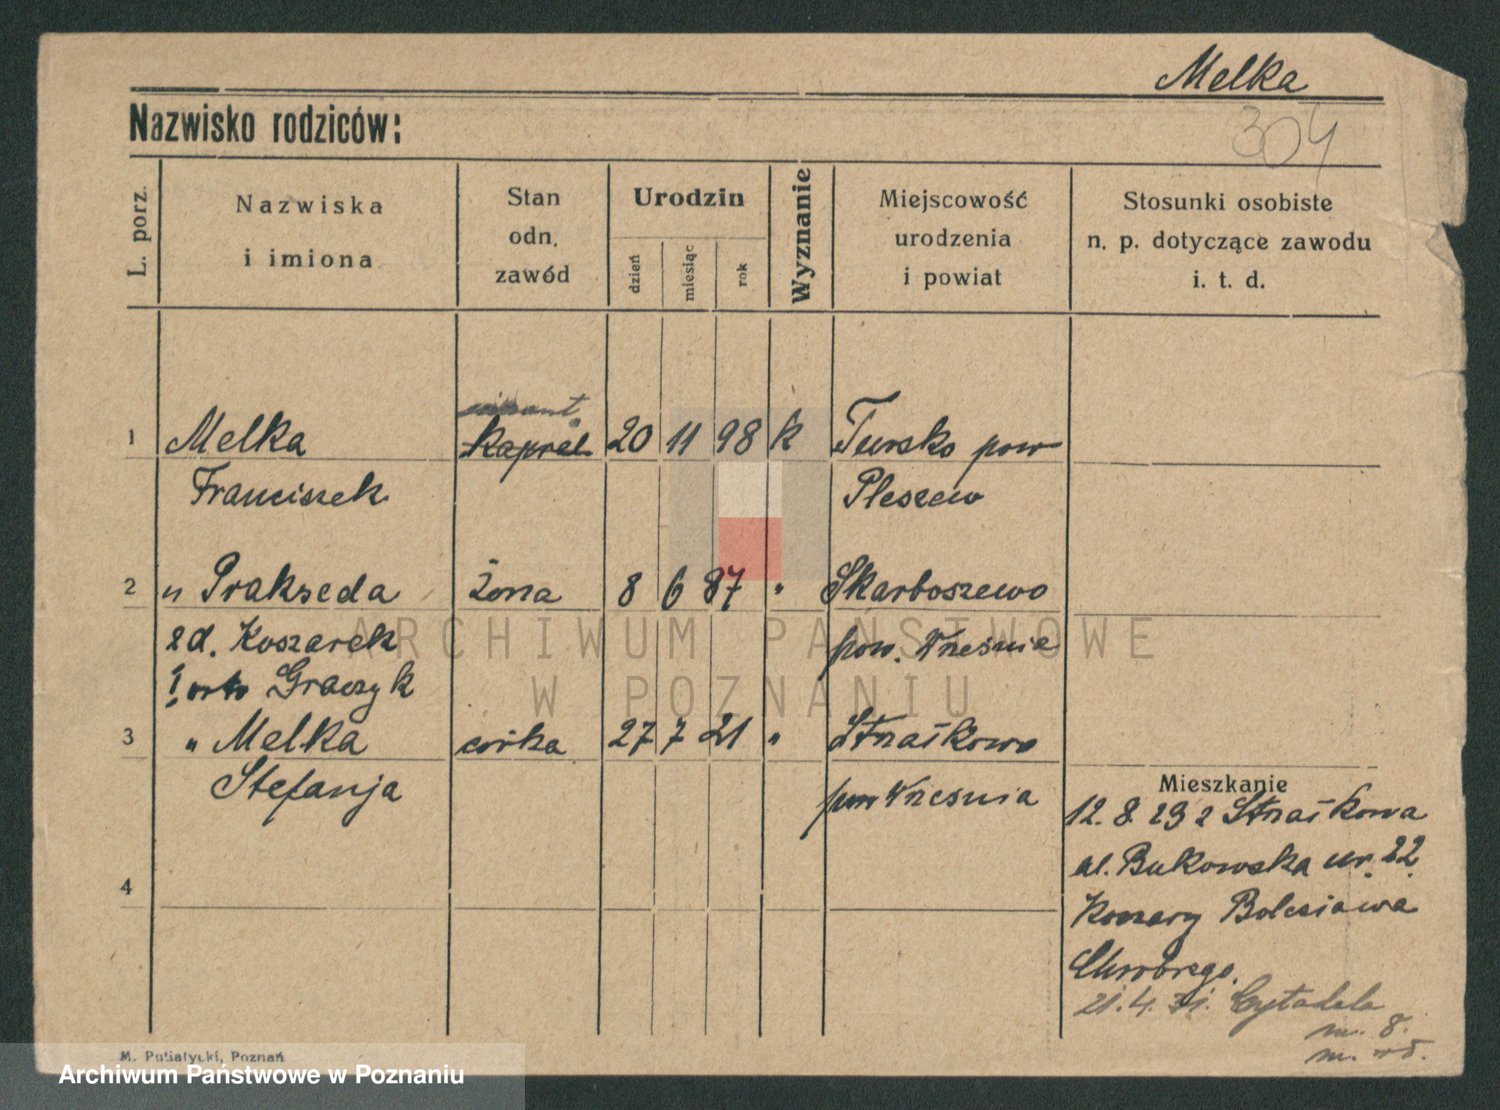 Melka
Nazwisko rodziców:
304
L. porz.
Nazwiska
i imiona
Stan
odn.
zawód
Urodzin
dzień
miesiąc
rok
Wyznanie
Miejscowość
urodzenia
i powiat
Stosunki osobiste
n. p. dotyczące zawodu
i. t. d.
1 Melka kapral 20 11 98 k Tursko pow
Franciszek Pleszew
2 " Prakseda żona 8 6 87 " Skarboszewo
zd. Koszarek pow. Września
Graczyk
3 " Melka córka 27 7 21 " Strzałkowo
Stefanja pow Wrzesnia
Mieszkanie
12. 8. 29 z Strzałkowa
ul. Bukowska nr. 22.
4
Koszary Bolesława
Chrobrego.
21. 4. 31. Cytadela
m. 8.
M. Putiatycki, Poznań
ARCHIWUM PAŃSTWOWE
W POZNANIU
Archiwum Państwowe w Poznaniu